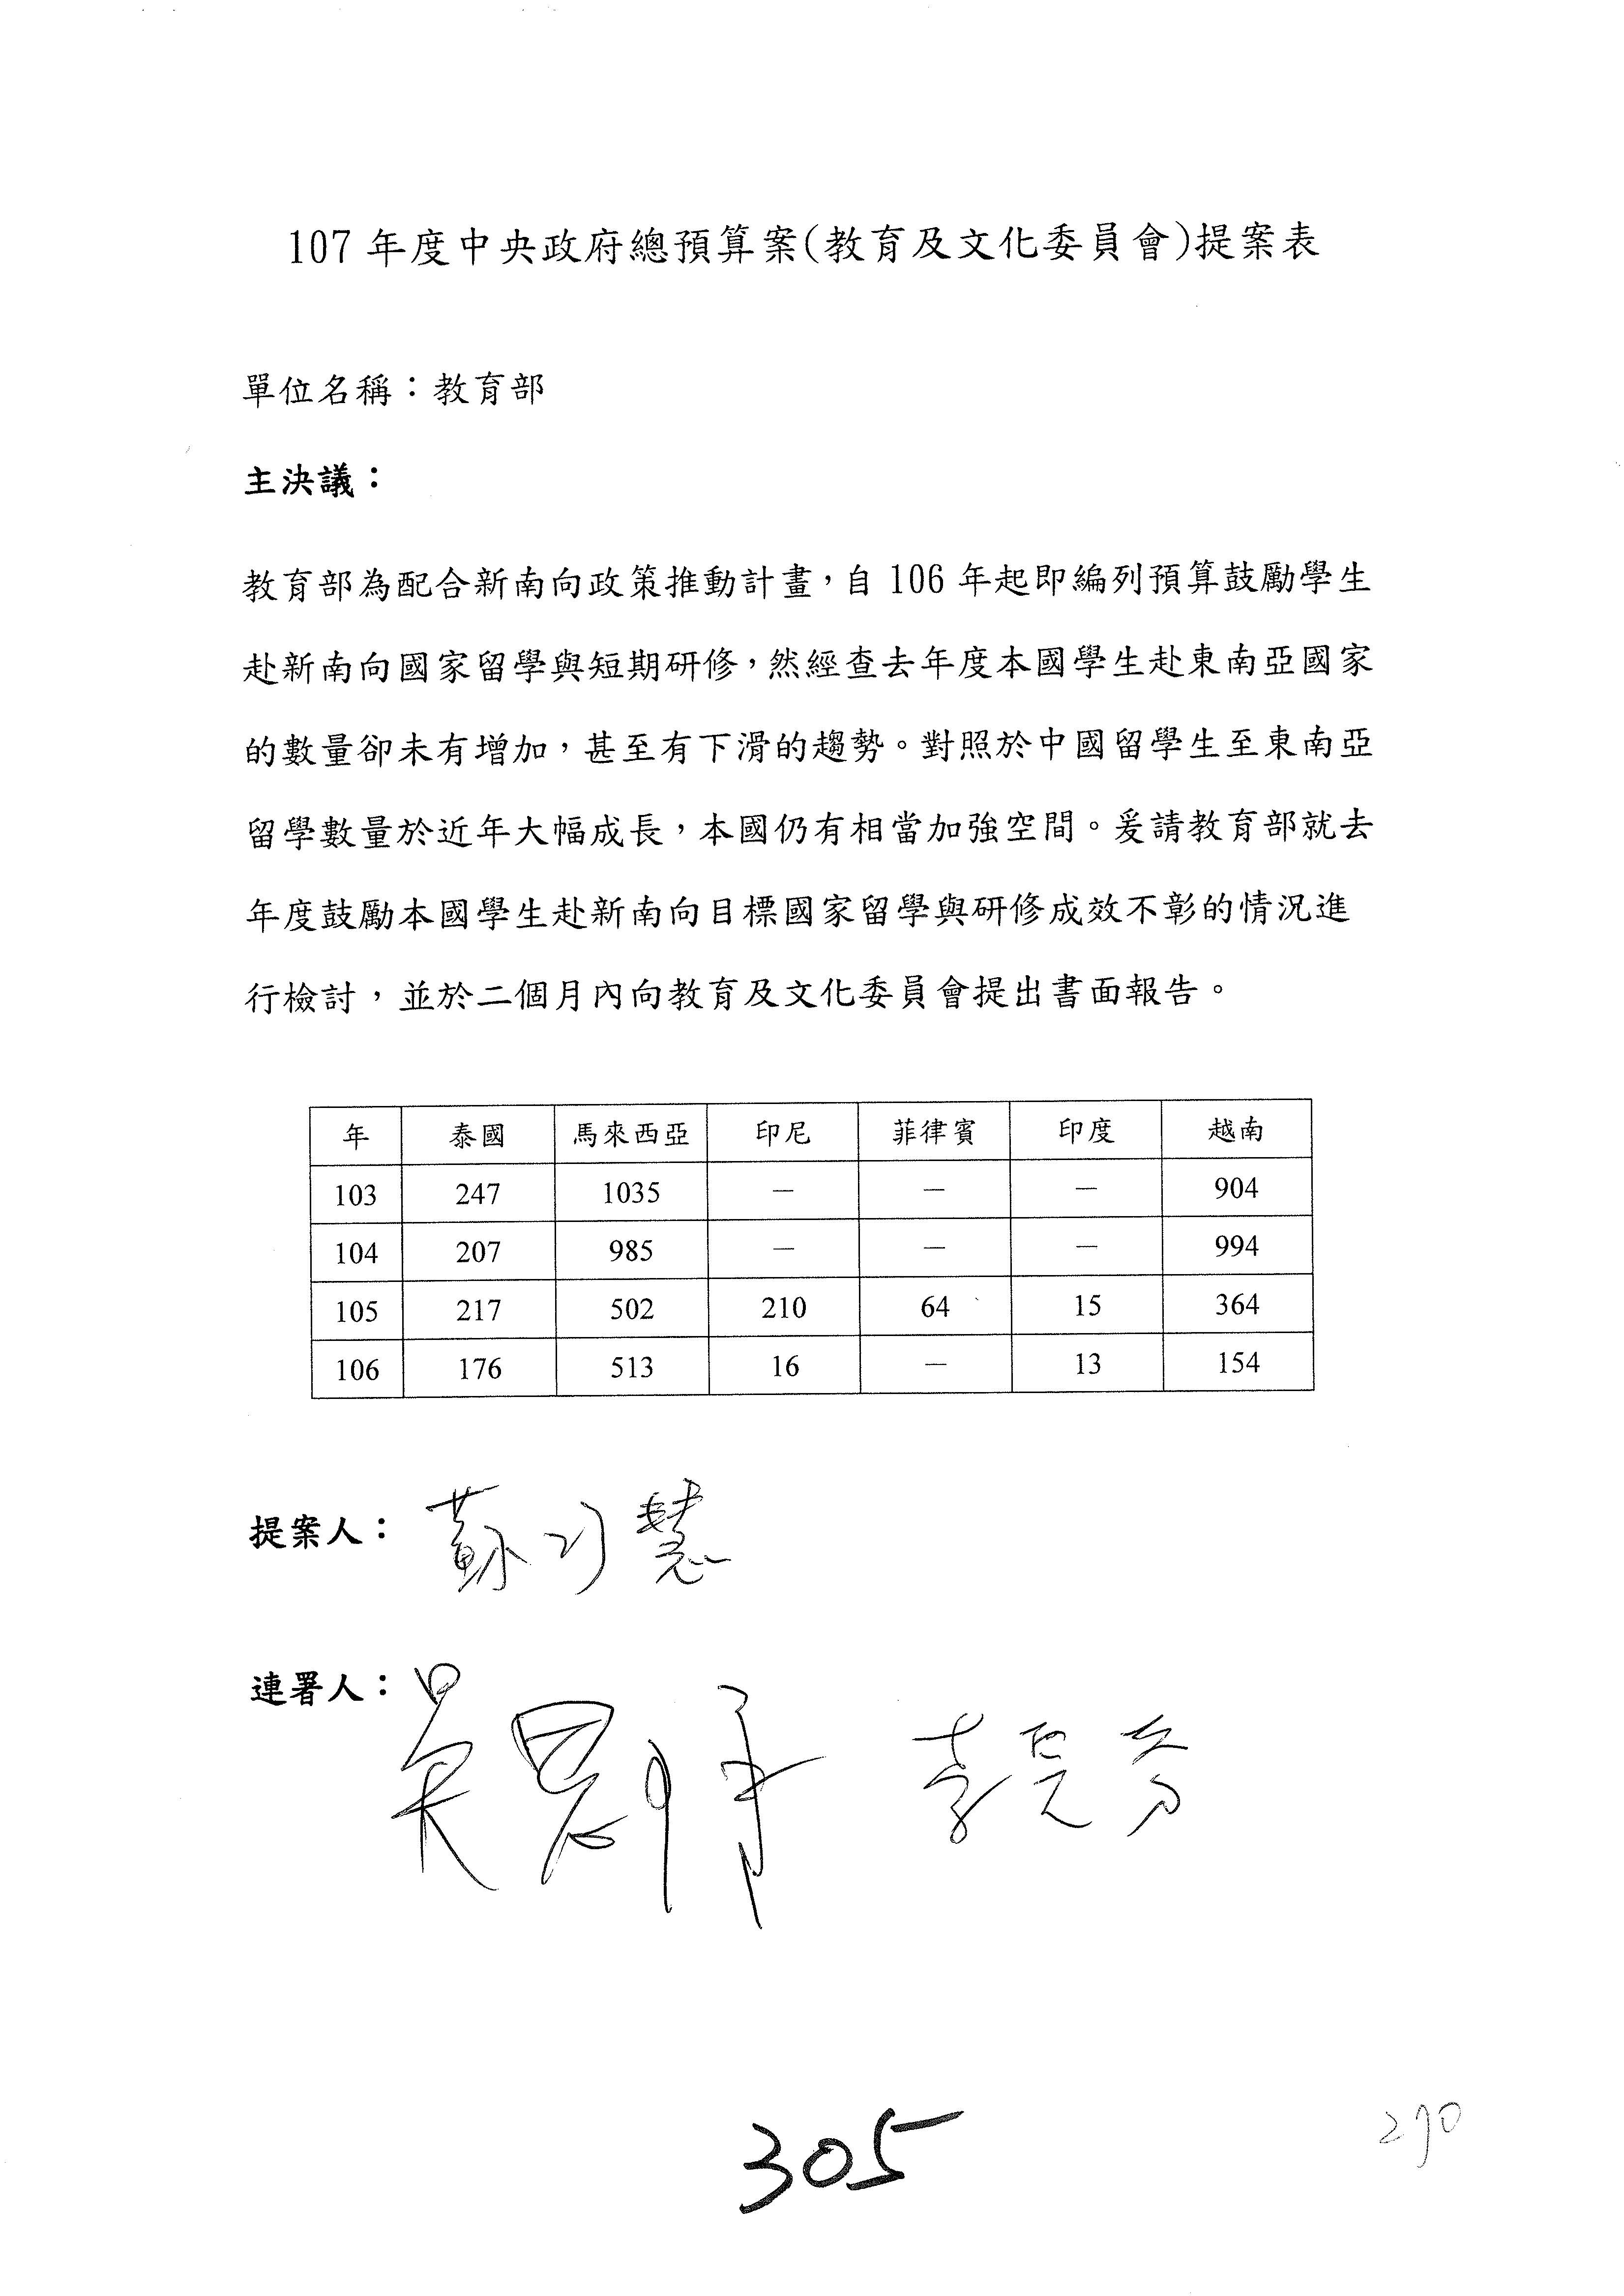 107 年度中央政府總預算案(教育及文化委員會)提案表
單位名稱：教育部
主決議：
教育部為配合新南向政策推動計畫，自 106 年起即編列預算鼓勵學生
赴新南向國家留學與短期研修，然經查去年度本國學生赴東南亞國家
的數量卻未有增加，甚至有下滑的趨勢。對照於中國留學生至東南亞
留學數量於近年大幅成長，本國仍有相當加強空間。爰請教育部就去
年度鼓勵本國學生赴新南向目標國家留學與研修成效不彰的情況進
行檢討，並於二個月內向教育及文化委員會提出書面報告。
年 泰國 馬來西亞 印尼 菲律賓 印度 越南
103 247 1035 — — — 904
104 207 985 — — — 994
105 217 502 210 64 15 364
106 176 513 16 — 13 154
提案人：蘇巧慧
連署人：吳思瑤 李昆
305
290